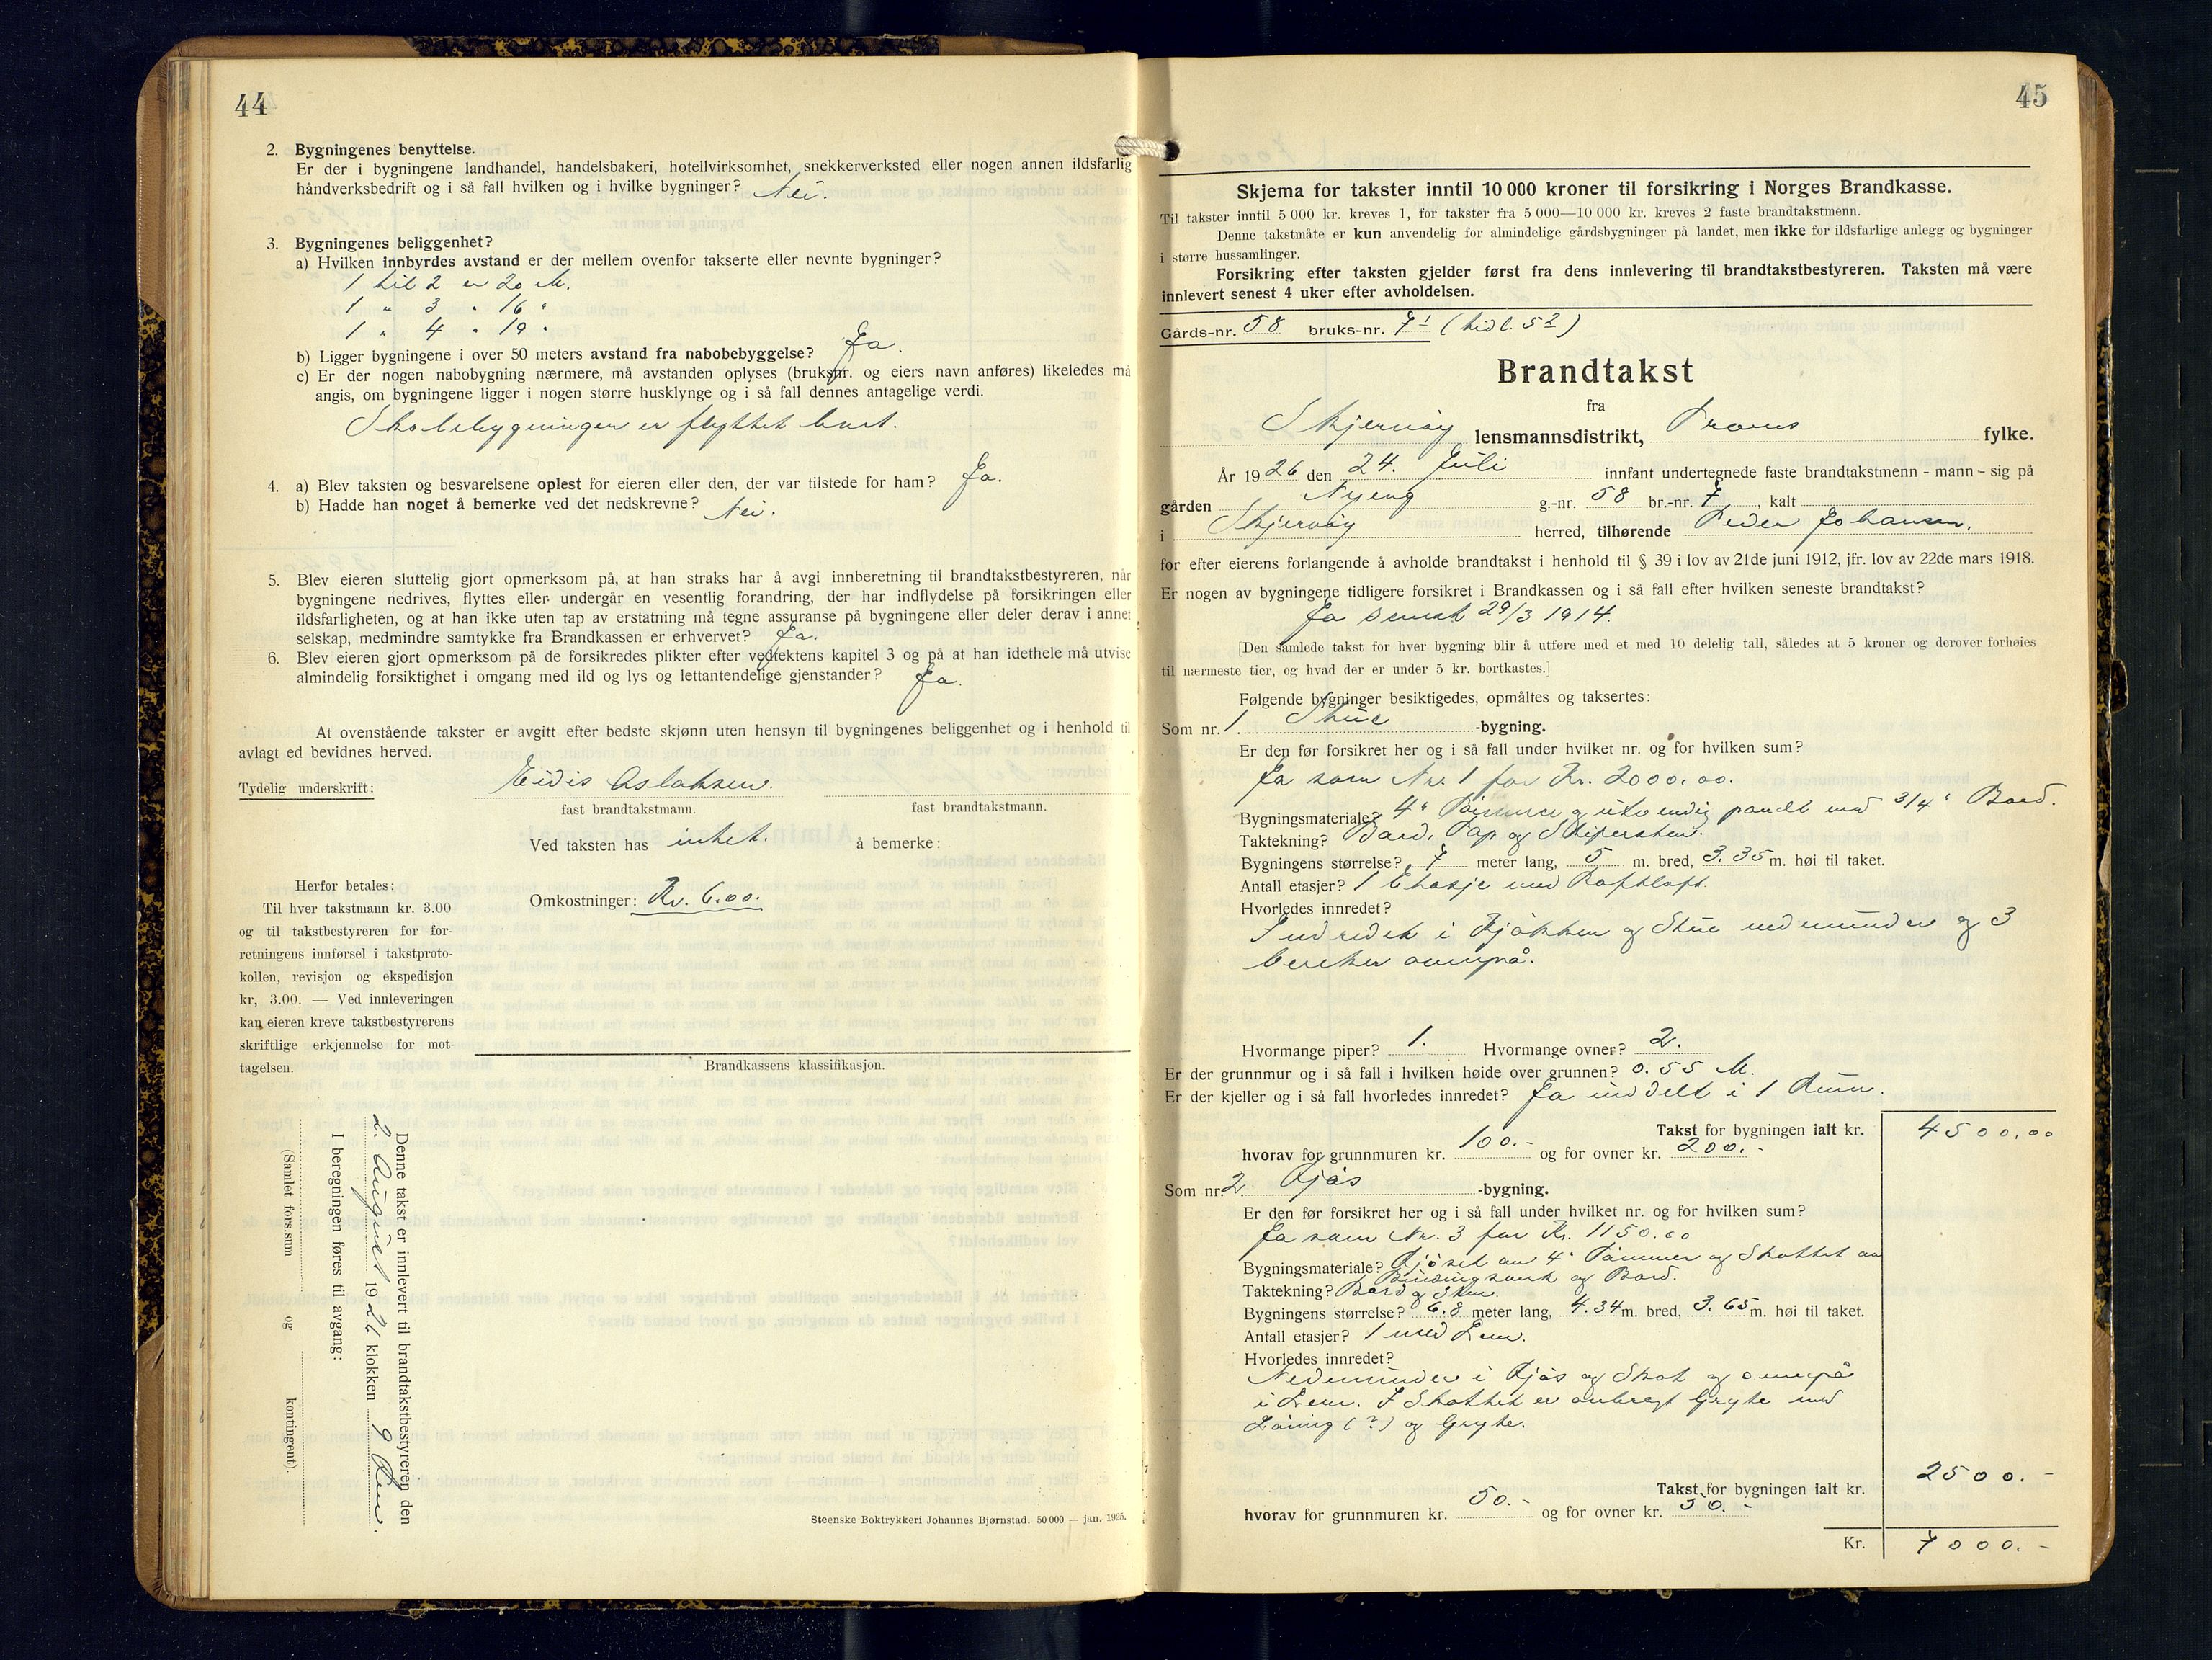 44
2. Bygningenes benyttelse.
Er der i bygningene landhandel, handelsbakeri, hotellvirksomhet, snekkerverksted eller nogen annen ildsfarlig
håndverksbedrift og i så fall hvilken og i hvilke bygninger? Nei.
3. Bygningenes beliggenhet?
a) Hvilken innbyrdes avstand er der mellem ovenfor takserte eller nevnte bygninger?
1 til 2 er 20 M.
1 " 3 " 16 "
1 " 4 " 19 "
b) Ligger bygningene i over 50 meters avstand fra nabobebyggelse? Ja.
c) Er der nogen nabobygning nærmere, må avstanden oplyses (bruksnr. og eiers navn anføres) likeledes må
angis, om bygningene ligger i nogen større husklynge og i så fall dennes antagelige verdi.
Skolebygningen er flyttet bort.
4. a) Blev taksten og besvarelsene oplest for eieren eller den, der var tilstede for ham? Ja.
b) Hadde han noget å bemerke ved det nedskrevne? Nei.
5. Blev eieren sluttelig gjort opmerksom på, at han straks har å avgi innberetning til brandtakstbestyreren, når
bygningene nedrives, flyttes eller undergår en vesentlig forandring, der har indflydelse på forsikringen eller
ildsfarligheten, og at han ikke uten tap av erstatning må tegne assuranse på bygningene eller deler derav i annet
selskap, medmindre samtykke fra Brandkassen er erhvervet? Ja.
6. Blev eieren gjort opmerksom på de forsikredes plikter efter vedtektens kapitel 3 og på at han idethele må utvise
almindelig forsiktighet i omgang med ild og lys og lettantendelige gjenstander? Ja.
At ovenstående takster er avgitt efter bedste skjønn uten hensyn til bygningenes beliggenhet og i henhold til
avlagt ed bevidnes herved.
Tydelig underskrift: Eidis Aslaksen.
fast brandtakstmann. fast brandtakstmann.
Ved taksten has intet. å bemerke:
Herfor betales:
Til hver takstmann kr. 3.00
og til takstbestyreren for for-
retningens innførsel i takstproto-
kollen, revisjon og ekspedisjon
kr, 3.00. — Ved innleveringen
kan eieren kreve takstbestyrerens
skriftlige erkjennelse for mot-
tagelsen.
Omkostninger: Kr. 6.00.
Brandkassens klassifikasjon.
Denne takst er innlevert til brandtakstbestyreren den
2. August 1926 klokken 9 Em.
I beregningen føres til avgang:
(Samlet fors.sum og kontingent).
Steenske Boktrykkeri Johannes Bjørnstad. 50 000 — jan. 1925.
45
Skjema for takster inntil 10 000 kroner til forsikring i Norges Brandkasse.
Til takster inntil 5 000 kr. kreves 1, for takster fra 5 000—10 000 kr. kreves 2 faste brandtakstmenn.
Denne takstmåte er kun anvendelig for almindelige gårdsbygninger på landet, men ikke for ildsfarlige anlegg og bygninger
i større hussamlinger.
Forsikring efter taksten gjelder først fra dens innlevering til brandtakstbestyreren. Taksten må være
innlevert senest 4 uker efter avholdelsen.
Gårds-nr. 58 bruks-nr. 7¹ (tidl. 5²)
Brandtakst
fra
Skjervøy lensmannsdistrikt, Troms fylke.
År 1926 den 24. Juli innfant undertegnede faste brandtakstmenn - mann - sig på
gården Nyeng g.-nr. 58 br.-nr. 7, kalt
i Skjervøy herred, tilhørende Peder Johansen.
for efter eierens forlangende å avholde brandtakst i henhold til § 39 i lov av 21de juni 1912, jfr. lov av 22de mars 1918.
Er nogen av bygningene tidligere forsikret i Brandkassen og i så fall efter hvilken seneste brandtakst?
Ja senest 29/3 1914.
[Den samlede takst for hver bygning blir å utføre med et med 10 delelig tall, således at 5 kroner og derover forhøies
til nærmeste tier, og hvad der er under 5 kr. bortkastes.]
Følgende bygninger besiktigedes, opmåltes og taksertes:
Som nr. 1. Stue -bygning.
Er den før forsikret her og i så fall under hvilket nr. og for hvilken sum?
Ja som Nr. 1 for Kr. 2000.00.
Bygningsmateriale? 4" Tømmer og utvendig panelt med 3/4" Bord.
Taktekning? Bord, Pap og Skifersten.
Bygningens størrelse? 7 meter lang, 5 m. bred, 3.35 m. høi til taket.
Antall etasjer? 1 Etasje med Loftsloft.
Hvorledes innredet?
Indredet i Kjøkken og Stue nedenunder og 3
Værelser ovenpå.
Hvormange piper? 1. Hvormange ovner? 2.
Er der grunnmur og i så fall i hvilken høide over grunnen? 0.55 M.
Er der kjeller og i så fall hvorledes innredet? Ja inddelt i 1 Rum.
Takst for bygningen ialt kr. 4500.00
hvorav for grunnmuren kr. 100.- og for ovner kr. 200.-
Som nr. 2 Fjøs -bygning.
Er den før forsikret her og i så fall under hvilket nr. og for hvilken sum?
Ja som Nr. 3 for Kr. 1150.00
Bygningsmateriale? Fjøset av 4" Tømmer og Skottet av
Bindingsverk og Bord.
Taktekning? Bord og Sten.
Bygningens størrelse? 6.8 meter lang, 4.34 m. bred, 3.65 m. høi til taket.
Antall etasjer? 1 med Lem.
Hvorledes innredet?
Nedenunder i Fjøs og Skot og ovenpå
i Lem. I Skottet er anbragt Gryte med
(?) og Gryte.
Takst for bygningen ialt kr. 2500.-
hvorav for grunnmuren kr. 50.- og for ovner kr. 50.-
Kr. 7000.-